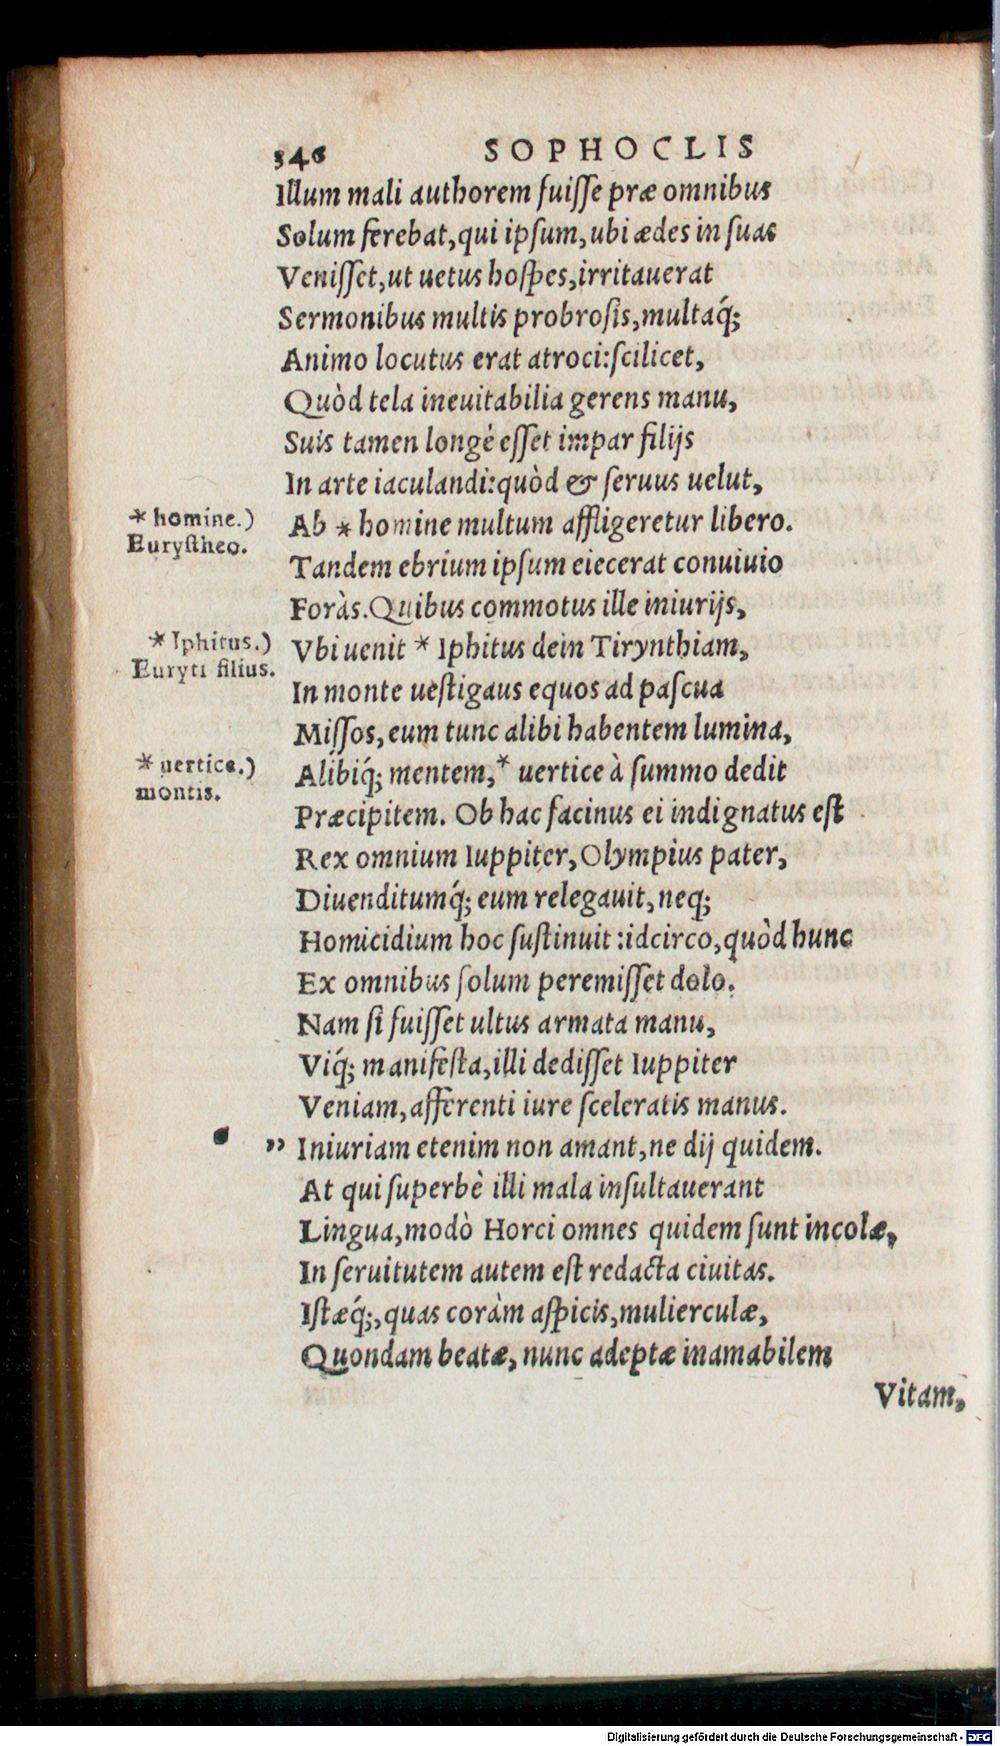 346 SOPHOCLIS
Illum mali authorem fuisse præ omnibus
Solum ferebat, qui ipsum, ubi ædes in suas
Venisset, ut uetus hospes, irritauerat
Sermonibus multis probrosis, multaq́;
Animo locutus erat atroci: scilicet,
Quòd tela ineuitabilia gerens manu,
Suis tamen longè esset impar filijs
In arte iaculandi: quòd & seruus uelut,
* homine.)
Eurystheo.
Ab * homine multum affligeretur libero.
Tandem ebrium ipsum eiecerat conuiuio
Foràs. Quibus commotus ille iniurijs,
* Iphitus.)
Euryti filius.
Vbi uenit * Iphitus dein Tirynthiam,
In monte uestigaus equos ad pascua
Missos, eum tunc alibi habentem lumina,
* uertice.)
montis.
Alibiq́; mentem, * uertice à summo dedit
Præcipitem. Ob hac facinus ei indignatus est
Rex omnium Iuppiter, Olympius pater,
Diuenditumq́; eum relegauit, neq;
Homicidium hoc sustinuit: idcirco, quòd hunc
Ex omnibus solum peremisset dolo.
Nam si fuisset ultus armata manu,
Viq́; manifesta, illi dedisset Iuppiter
Veniam, afferenti iure sceleratis manus.
,, Iniuriam etenim non amant, ne dij quidem.
At qui superbè illi mala insultauerant
Lingua, modò Horci omnes quidem sunt incolæ,
In seruitutem autem est redacta ciuitas.
Istæq́;, quas coràm aspicis, mulierculæ,
Quondam beatæ, nunc adeptæ inamabilem
Vitam,
Digitalisierung gefördert durch die Deutsche Forschungsgemeinschaft - DFG